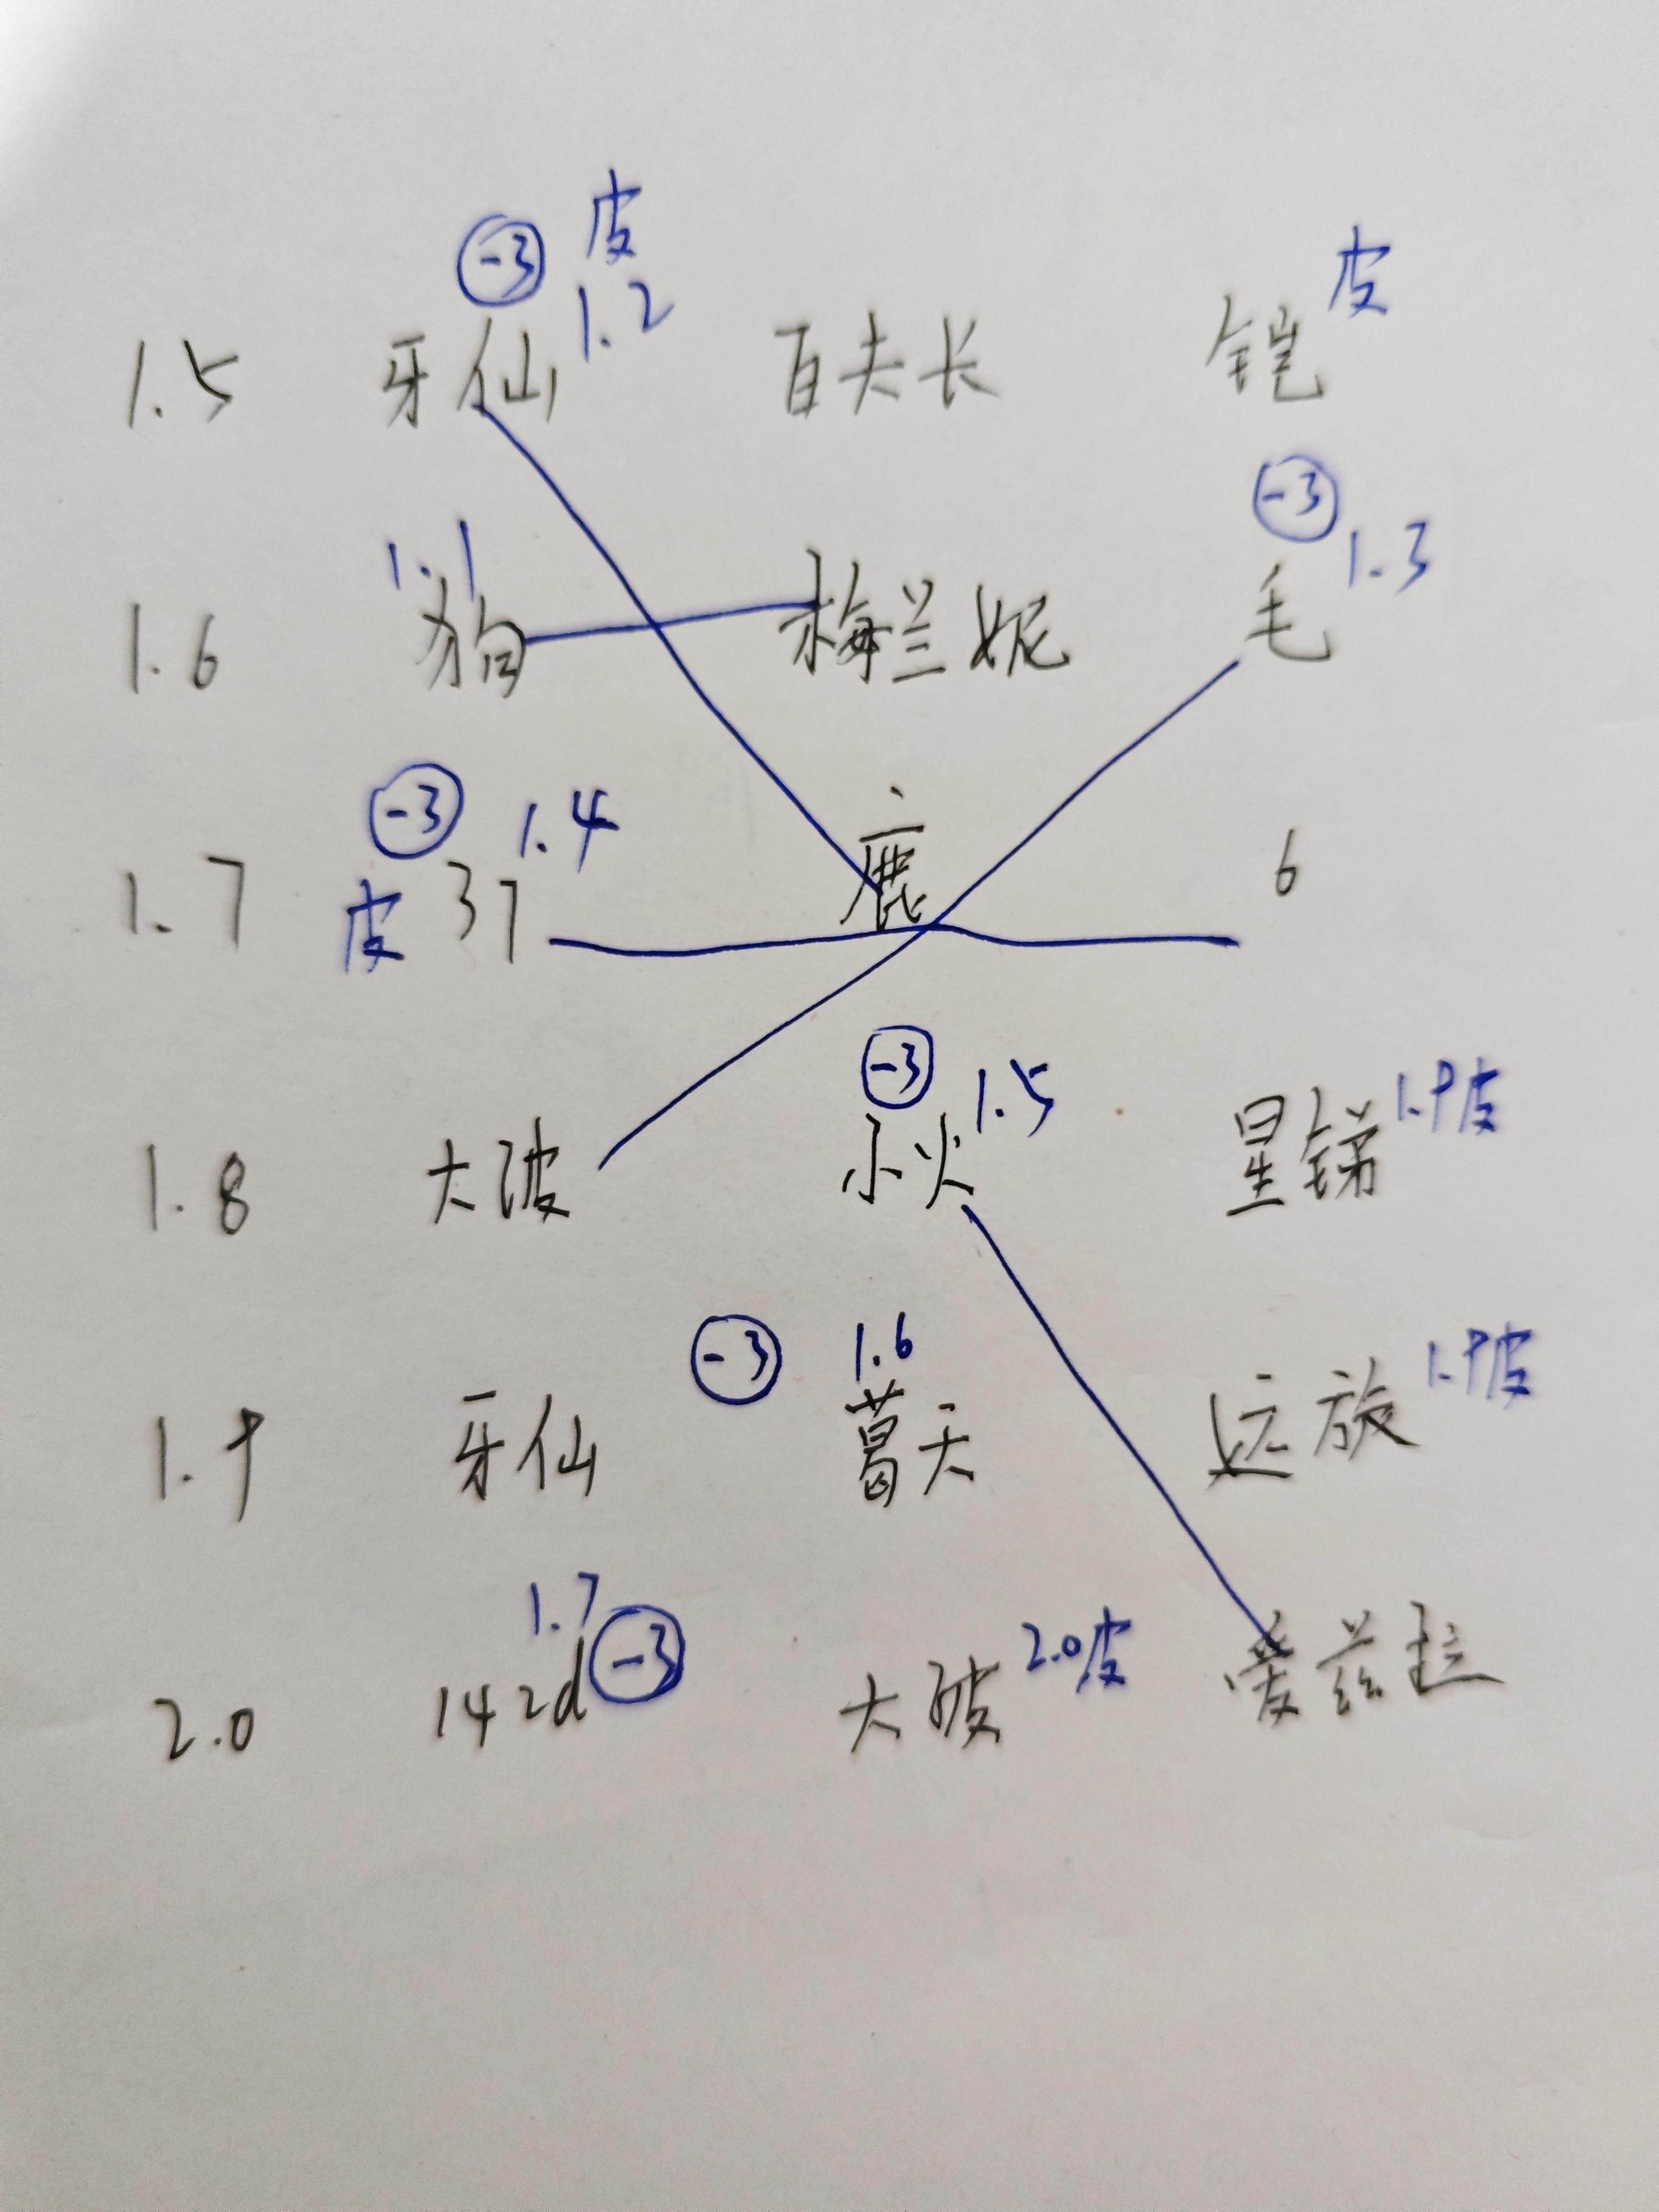 皮
-3 1.2 皮
1.5 牙仙 百夫长 铠
-3
1.1 1.3
1.6 狗 梅兰妮 毛
-3 1.4
1.7 皮 37 鹿 6
-3 1.5 1.9皮
1.8 大波 小火 星锑
-3 1.6 1.9皮
1.9 牙仙 葛天 远旅
1.7 -3 2.0皮
2.0 142d 大陂 爱兹拉